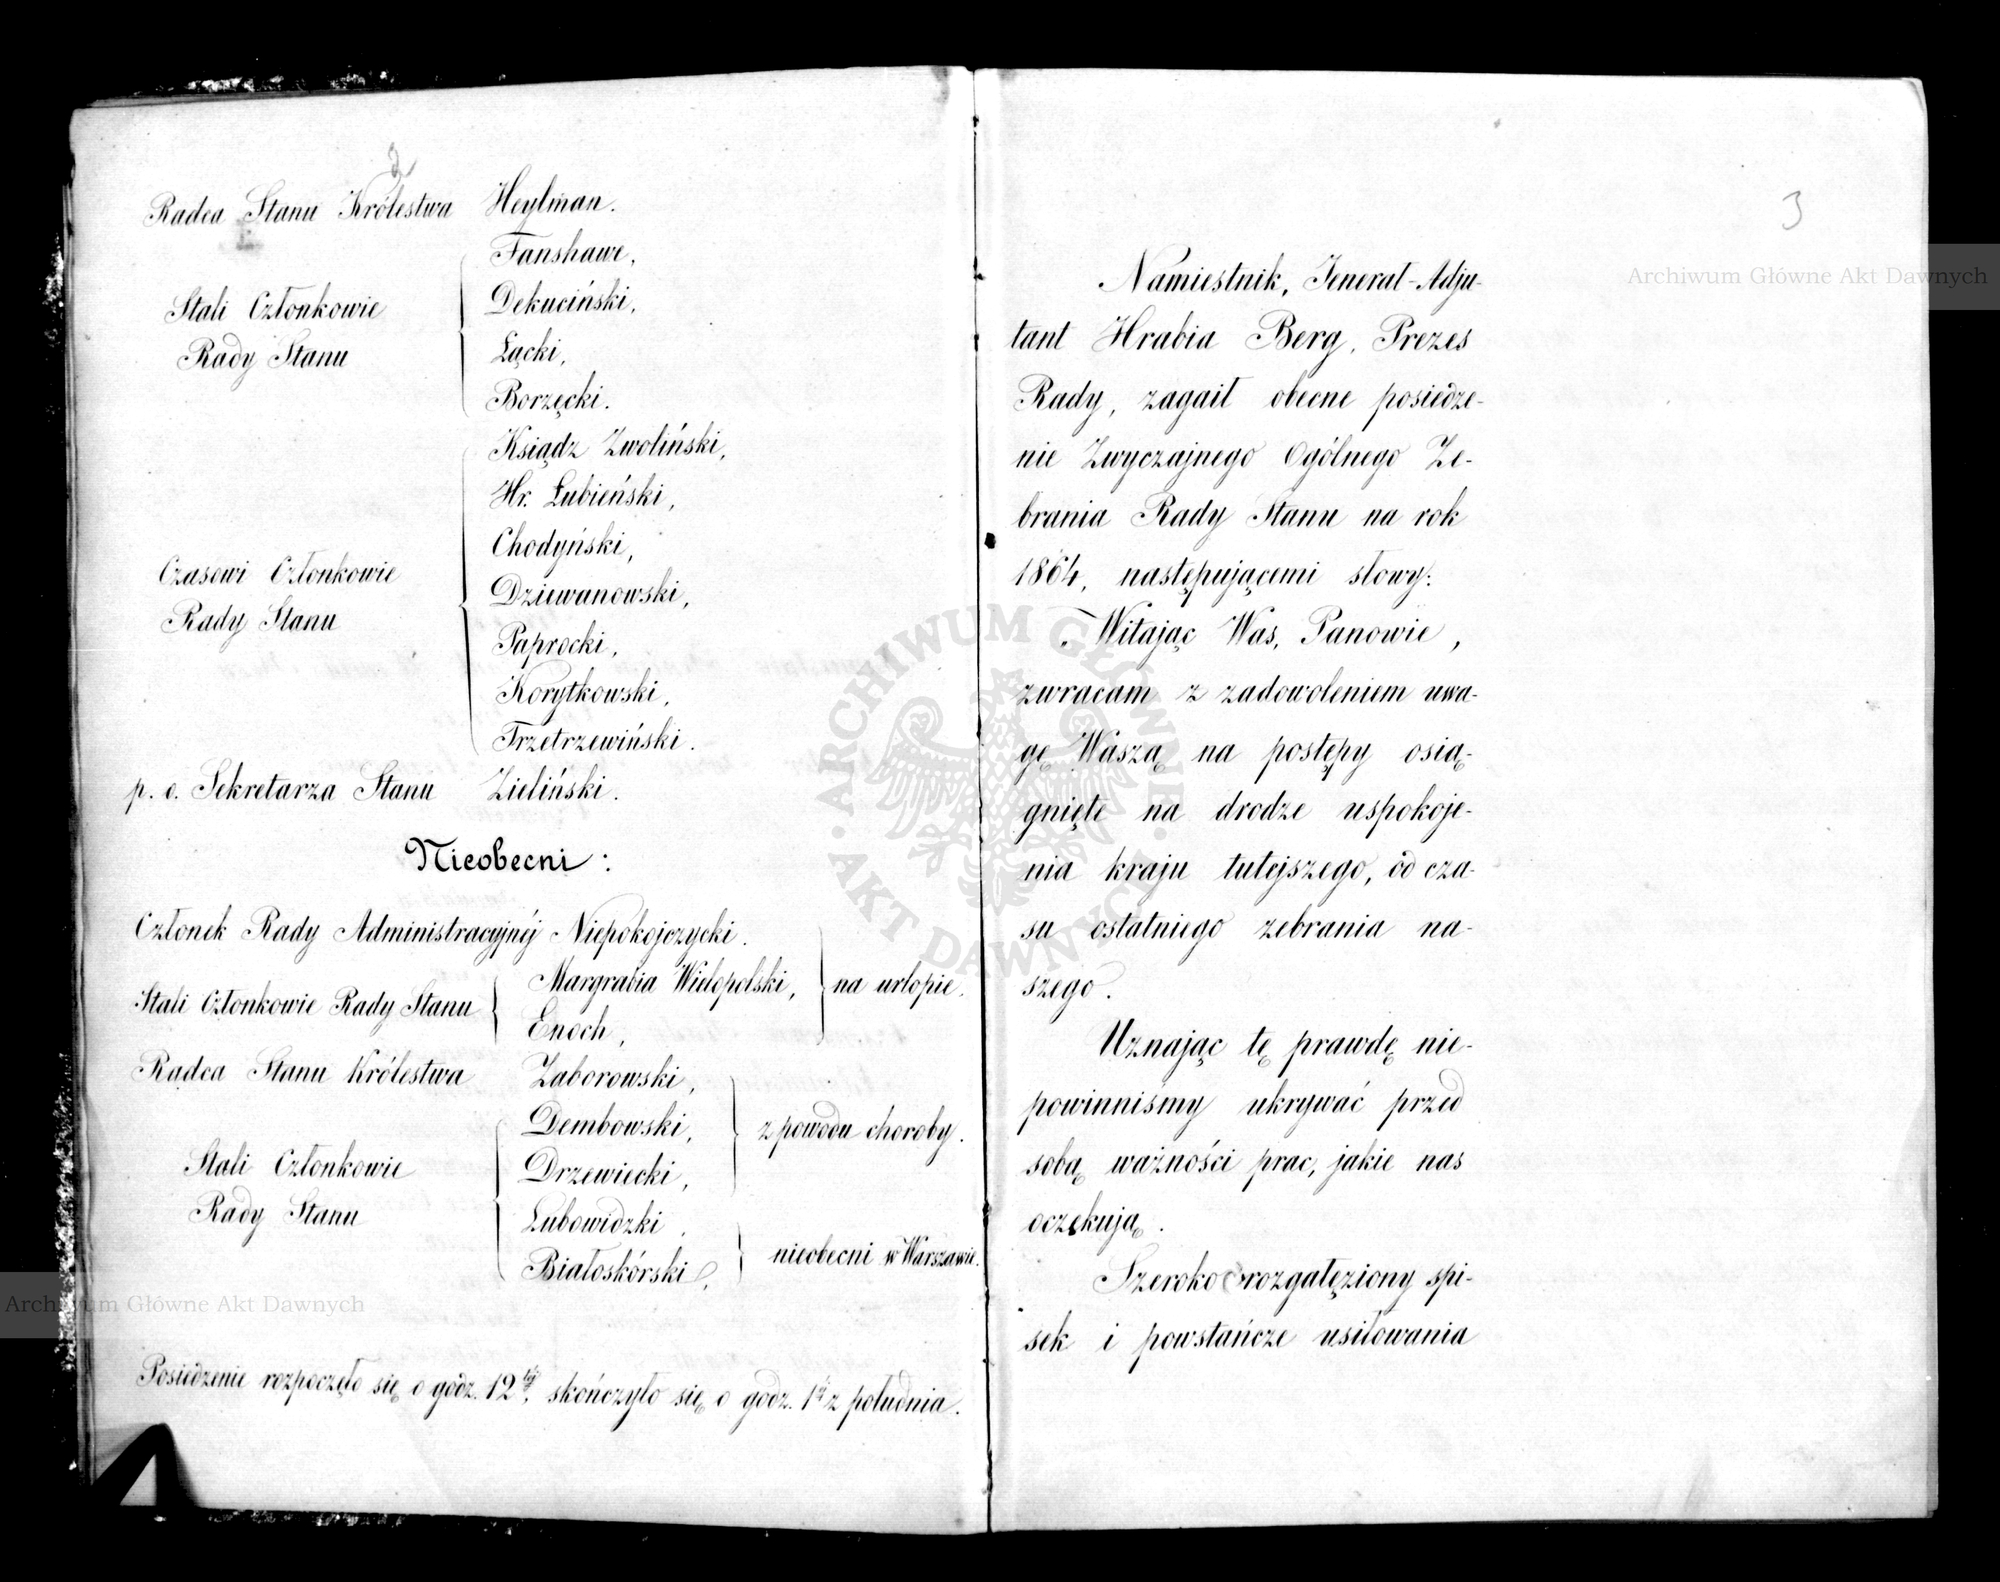 2
Radca Stanu Królestwa Heylman.
Fanshawe,
Stali Członkowie Dekuciński,
Rady Stanu Łącki,
Borzęcki.
Ksiądz Zwoliński,
Hr. Łubieński,
Chodyński,
Czasowi Członkowie Dziewanowski,
Rady Stanu Paprocki,
Korytkowski,
Trzetrzewiński.
p. o. Sekretarza Stanu Zieliński.
Nieobecni:
Członek Rady Administracyjnéj Niepokojczycki.
Stali Członkowie Rady Stanu Margrabia Wielopolski, na urlopie.
Enoch,
Radca Stanu Królestwa Zaborowski,
Dembowski, z powodu choroby.
Stali Członkowie Drzewiecki,
Rady Stanu Łubowidzki,
Białoskórski, nieobecni w Warszawie.
Posiedzenie rozpoczęło się o godz. 12téj, skończyło się o godz. 1éj z południa.
3
Namiestnik, Jenerał-Adju-
tant Hrabia Berg, Prezes
Rady, zagaił obecne posiedze-
nie Zwyczajnego Ogólnego Ze-
brania Rady Stanu na rok
1864, następującemi słowy:
„Witając Was, Panowie,
zwracam z zadowoleniem uwa-
gę Waszą na postępy osią-
gnięte na drodze uspokoje-
nia kraju tutejszego, od cza-
su ostatniego zebrania na-
szego.
Uznając tę prawdę nie-
powinniśmy ukrywać przed
sobą ważności prac, jakie nas
oczekują.
Szeroko rozgałęziony spi-
sek i powstańcze usiłowania
Archiwum Główne Akt Dawnych
Archiwum Główne Akt Dawnych
ARCHIWUM GŁÓWNE AKT DAWNYCH